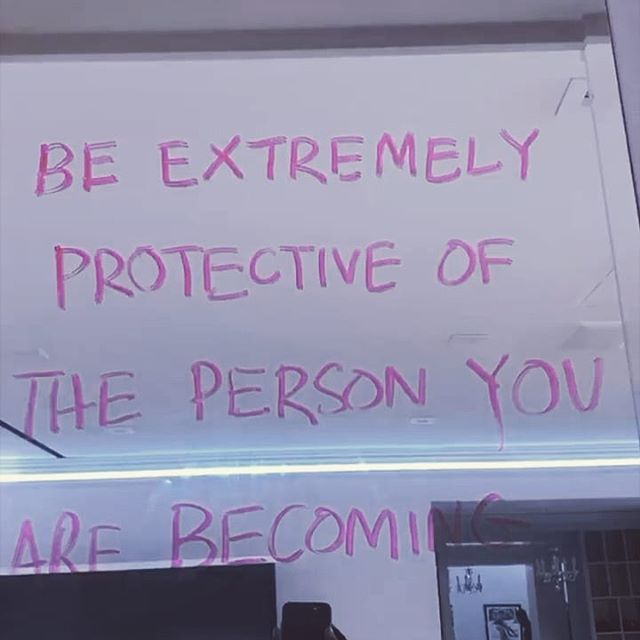 BE EXTREMELY
PROTECTIVE OF
THE PERSON YOU
ARE BECOMING